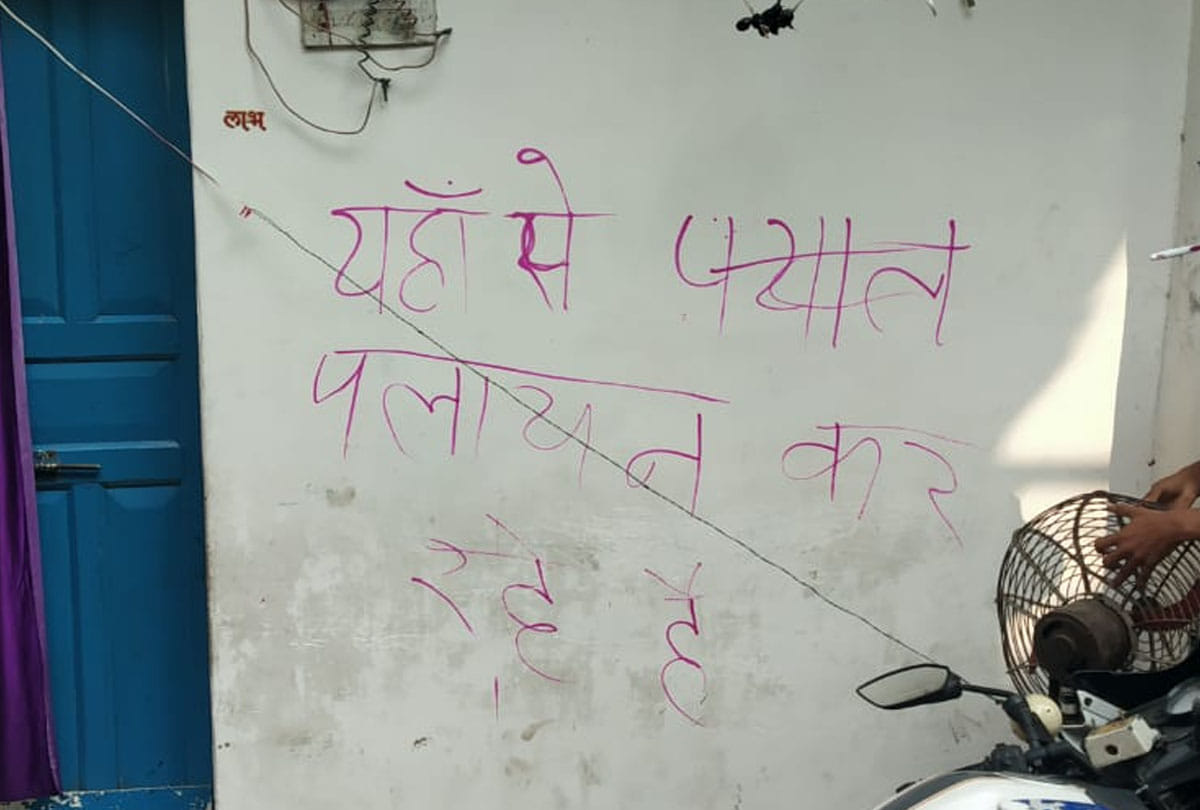 लाभ
यहाँ से पयात
पलायन कर
रहे है